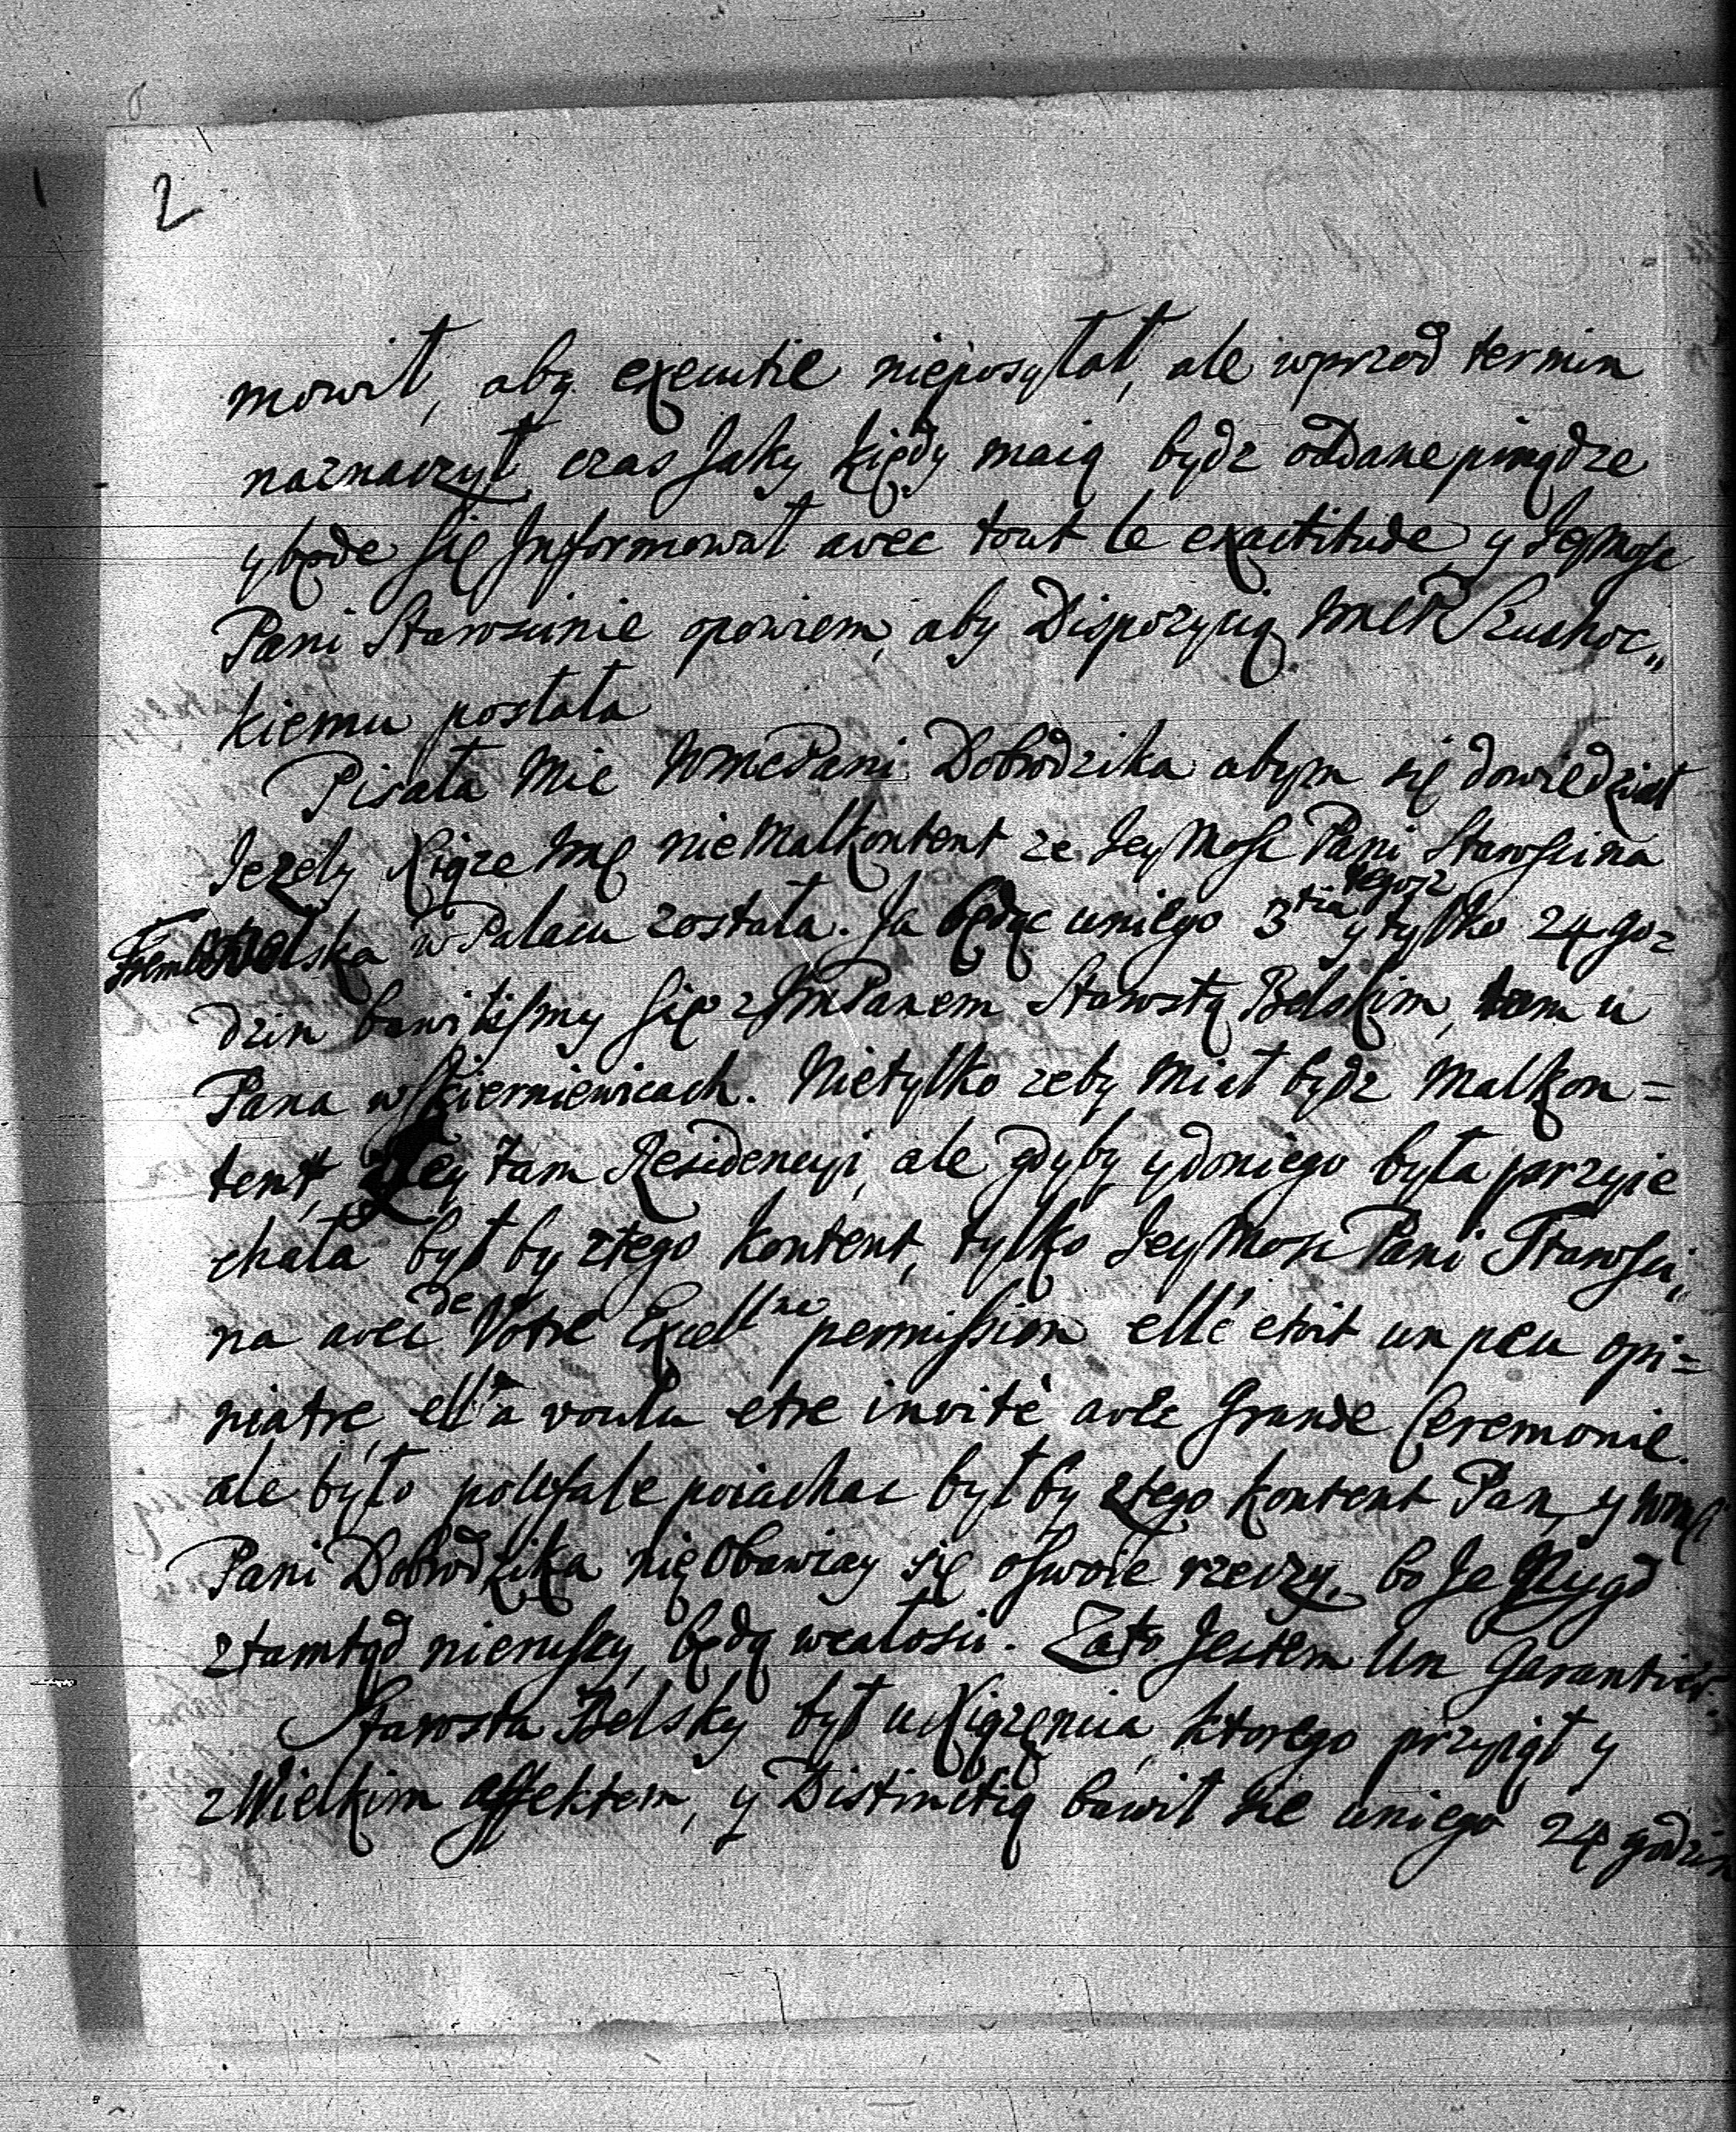 2
mowił, aby exeuutie nieposyłał, ale wprzod termin
naznaczył czas Jaky kiędy maią bydz oddane piniądze
y będe się Jnformował avec tout le exactitude, y Jeymosc
Pani Starościnie opowiem, aby Dispozycią ImcP. Szuchoc„
kiemu posłała
Pisała Mie WmcPani Dobrodzika abym się dowiedział
Jezely Xiąze Imę nie Malkontent ze Jey Mość Pani Starościna
Trembowelska w Pałacu została. Ja będąc uniego 3tia tegosz y tylko 24 go=
dzin bawilismy się z ImPanem Starostą Belskim, tam u
Pana w Skierniewicach. Nietylko zeby Miał bydz Malkon=
tent, zJey tam Residencyi, ale gdyby y doniego była przyie
chała był by ztego Kontent, tylko Jey Mość Pani Starości„
na avec de Votre Excellnce permission ellé etoit un peu opi=
niatre, ell'a voulu etre invité avec Grande Ceremonie.
ale było poufale poiachac był by ztego Kontent Pan, y Wmć
Pani Dobrodzika nię Obawiay się oswoie rzeczy, bo Je Nygd
ztamtąd nieruszy, będą wcałosci. Zato Jestem Un Garantier.
Starosta Belsky był u Xiązęncia, ktorego przyiął y
z Wielkim affektem, y Distinctią bawił sie uniego 24 godzin